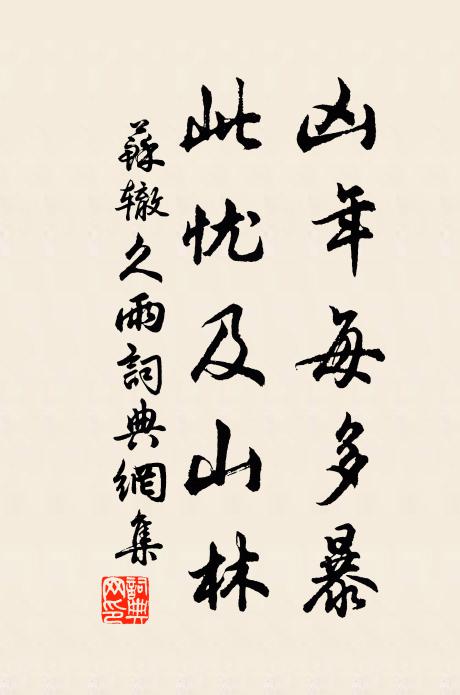 凶年每多暴
此忧及山林
蘇辙久雨詞典網集
詞典网印